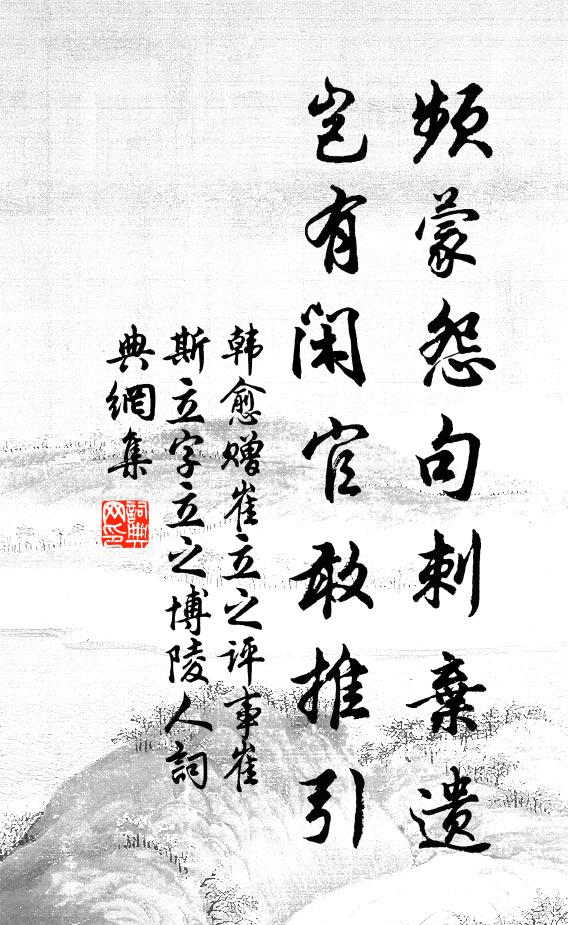 频蒙怨句刺棄遗
岂有闲官敢推引
韩愈赠崔立之评事崔
斯立字立之博陵人詞
典網集
詞典
网印